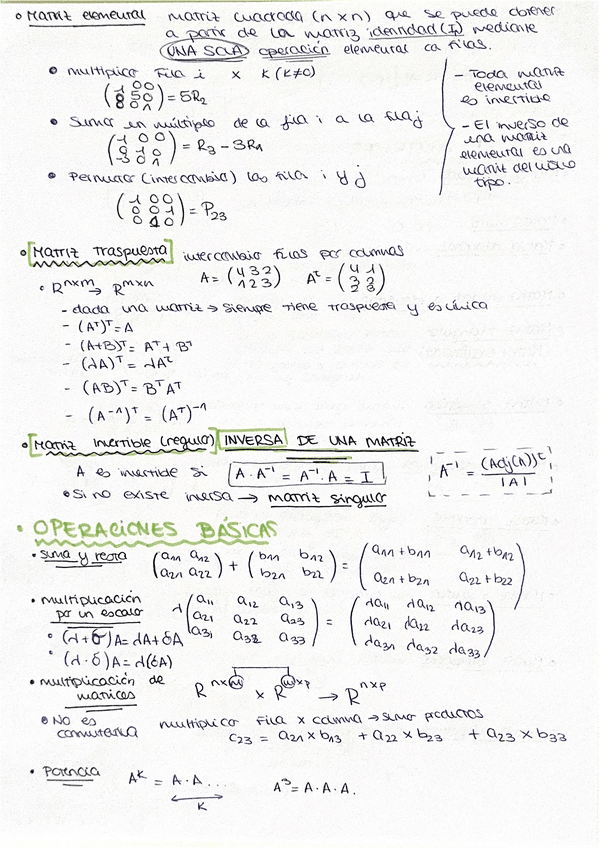 • Matriz elemental matriz cuadrada (n x n) que se puede obtener
a partir de la matriz identidad (I) mediante
UNA SOLA operación elemental ca filas.
• multiplico fila i x K (K≠0)
(1 0 0
0 5 0
0 0 1) = 5R2
• Sumar un múltiplo de la fila i a la fila j
(1 0 0
0 1 0
-3 0 1) = R3 - 3R1
• Permutar (intercambia) las fila i y j
(1 0 0
0 0 1
0 1 0) = P23
- Toda matriz
elemental
es invertible
- El inverso de
una matriz
elemental es una
matriz del mismo
tipo.
• Matriz traspuesta intercambio filas por columnas
• R^nxm → R^mxn A = (4 3 2
1 2 3) A^t = (4 1
3 2
2 3)
- dada una matriz → siempre tiene traspuesta y es única
- (A^T)^T = A
- (A+B)^T = A^T + B^T
- (λA)^T = λA^t
- (AB)^T = B^T A^T
- (A^-1)^T = (A^T)^-1
• Matriz invertible (regular) INVERSA DE UNA MATRIZ
A es invertible si A · A^-1 = A^-1 · A = I
A^-1 = (Adj(A))^t / |A|
• Si no existe inversa → matriz singular
• OPERACIONES BÁSICAS
• suma y resta (a11 a12
a21 a22) + (b11 b12
b21 b22) = (a11+b11 a12+b12
a21+b21 a22+b22)
• multiplicación
por un escalar
λ (a11 a12 a13
a21 a22 a23
a31 a32 a33) = (λa11 λa12 λa13
λa21 λa22 λa23
λa31 λa32 λa33)
• (λ+δ)A = λA+δA
• (λ·δ)A = λ(δA)
• multiplicación de
matrices
R^nxm x R^mxp → R^nxp
• No es
conmutativa
multiplico fila x columna → sumo productos
c23 = a21 x b13 + a22 x b23 + a23 x b33
• Potencia A^K = A · A ...
K
A^3 = A · A · A.